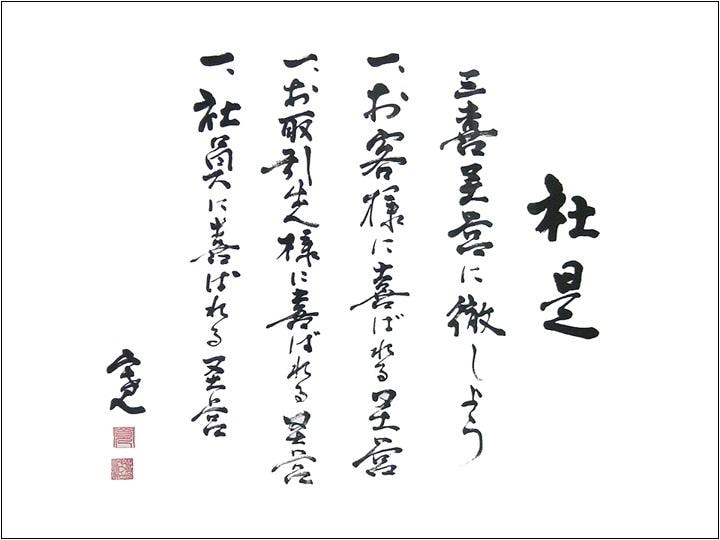 社是
三喜経営に徹しよう
一、お客様に喜ばれる経営
一、お取引先様に喜ばれる経営
一、社員に喜ばれる経営
寛